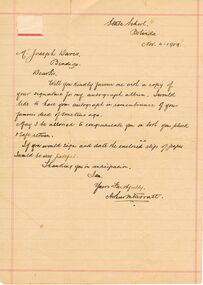 State School,
Nov. 4. 1909.
Mr Joseph Davis,
Bendigo.
Dear Sir,
Will you kindly favour me with a copy of
your signature for my autograph album. I would
like to have your autograph in remembrance of your
famous deed of
May I be allowed to congratulate you on both your pluck
& safe return.
If you would sign and date the enclosed slips of paper
I would be very grateful.
Thanking you in anticipation.
I am
Yours faithfully,